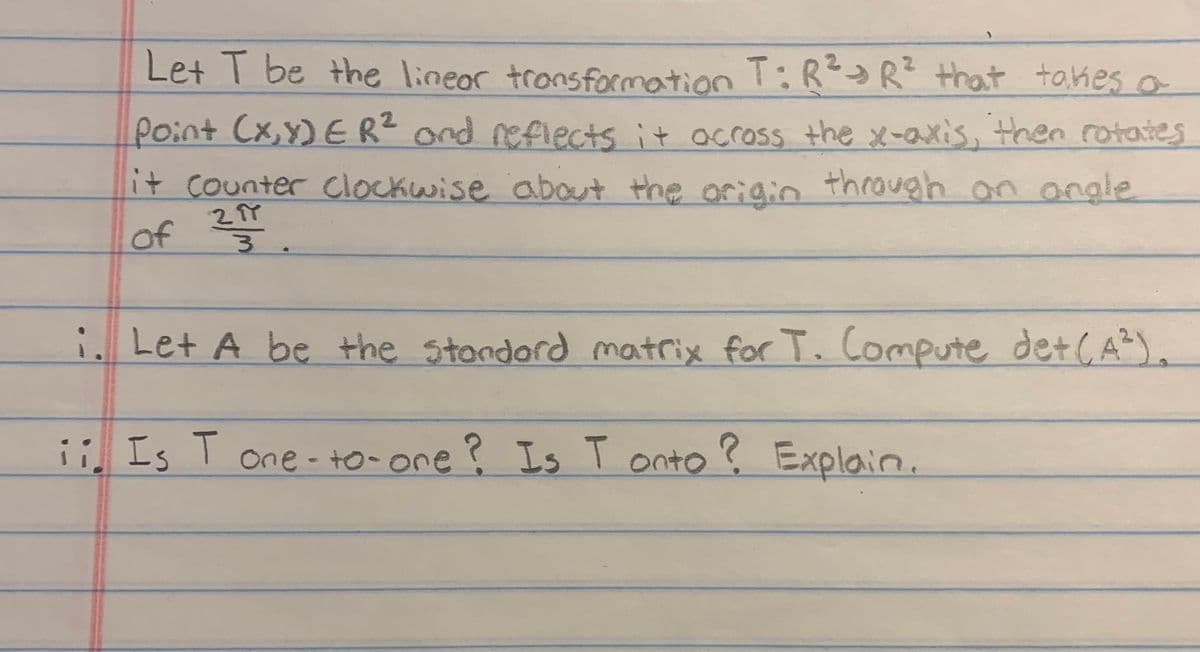 Let T be the linear transformation T: R² → R² that takes a
point (x,y) ∈ R² and reflects it across the x-axis, then rotates
it counter clockwise about the origin through an angle
of 2π/3.
i. Let A be the standard matrix for T. Compute det(A²).
ii. Is T one-to-one? Is T onto? Explain.